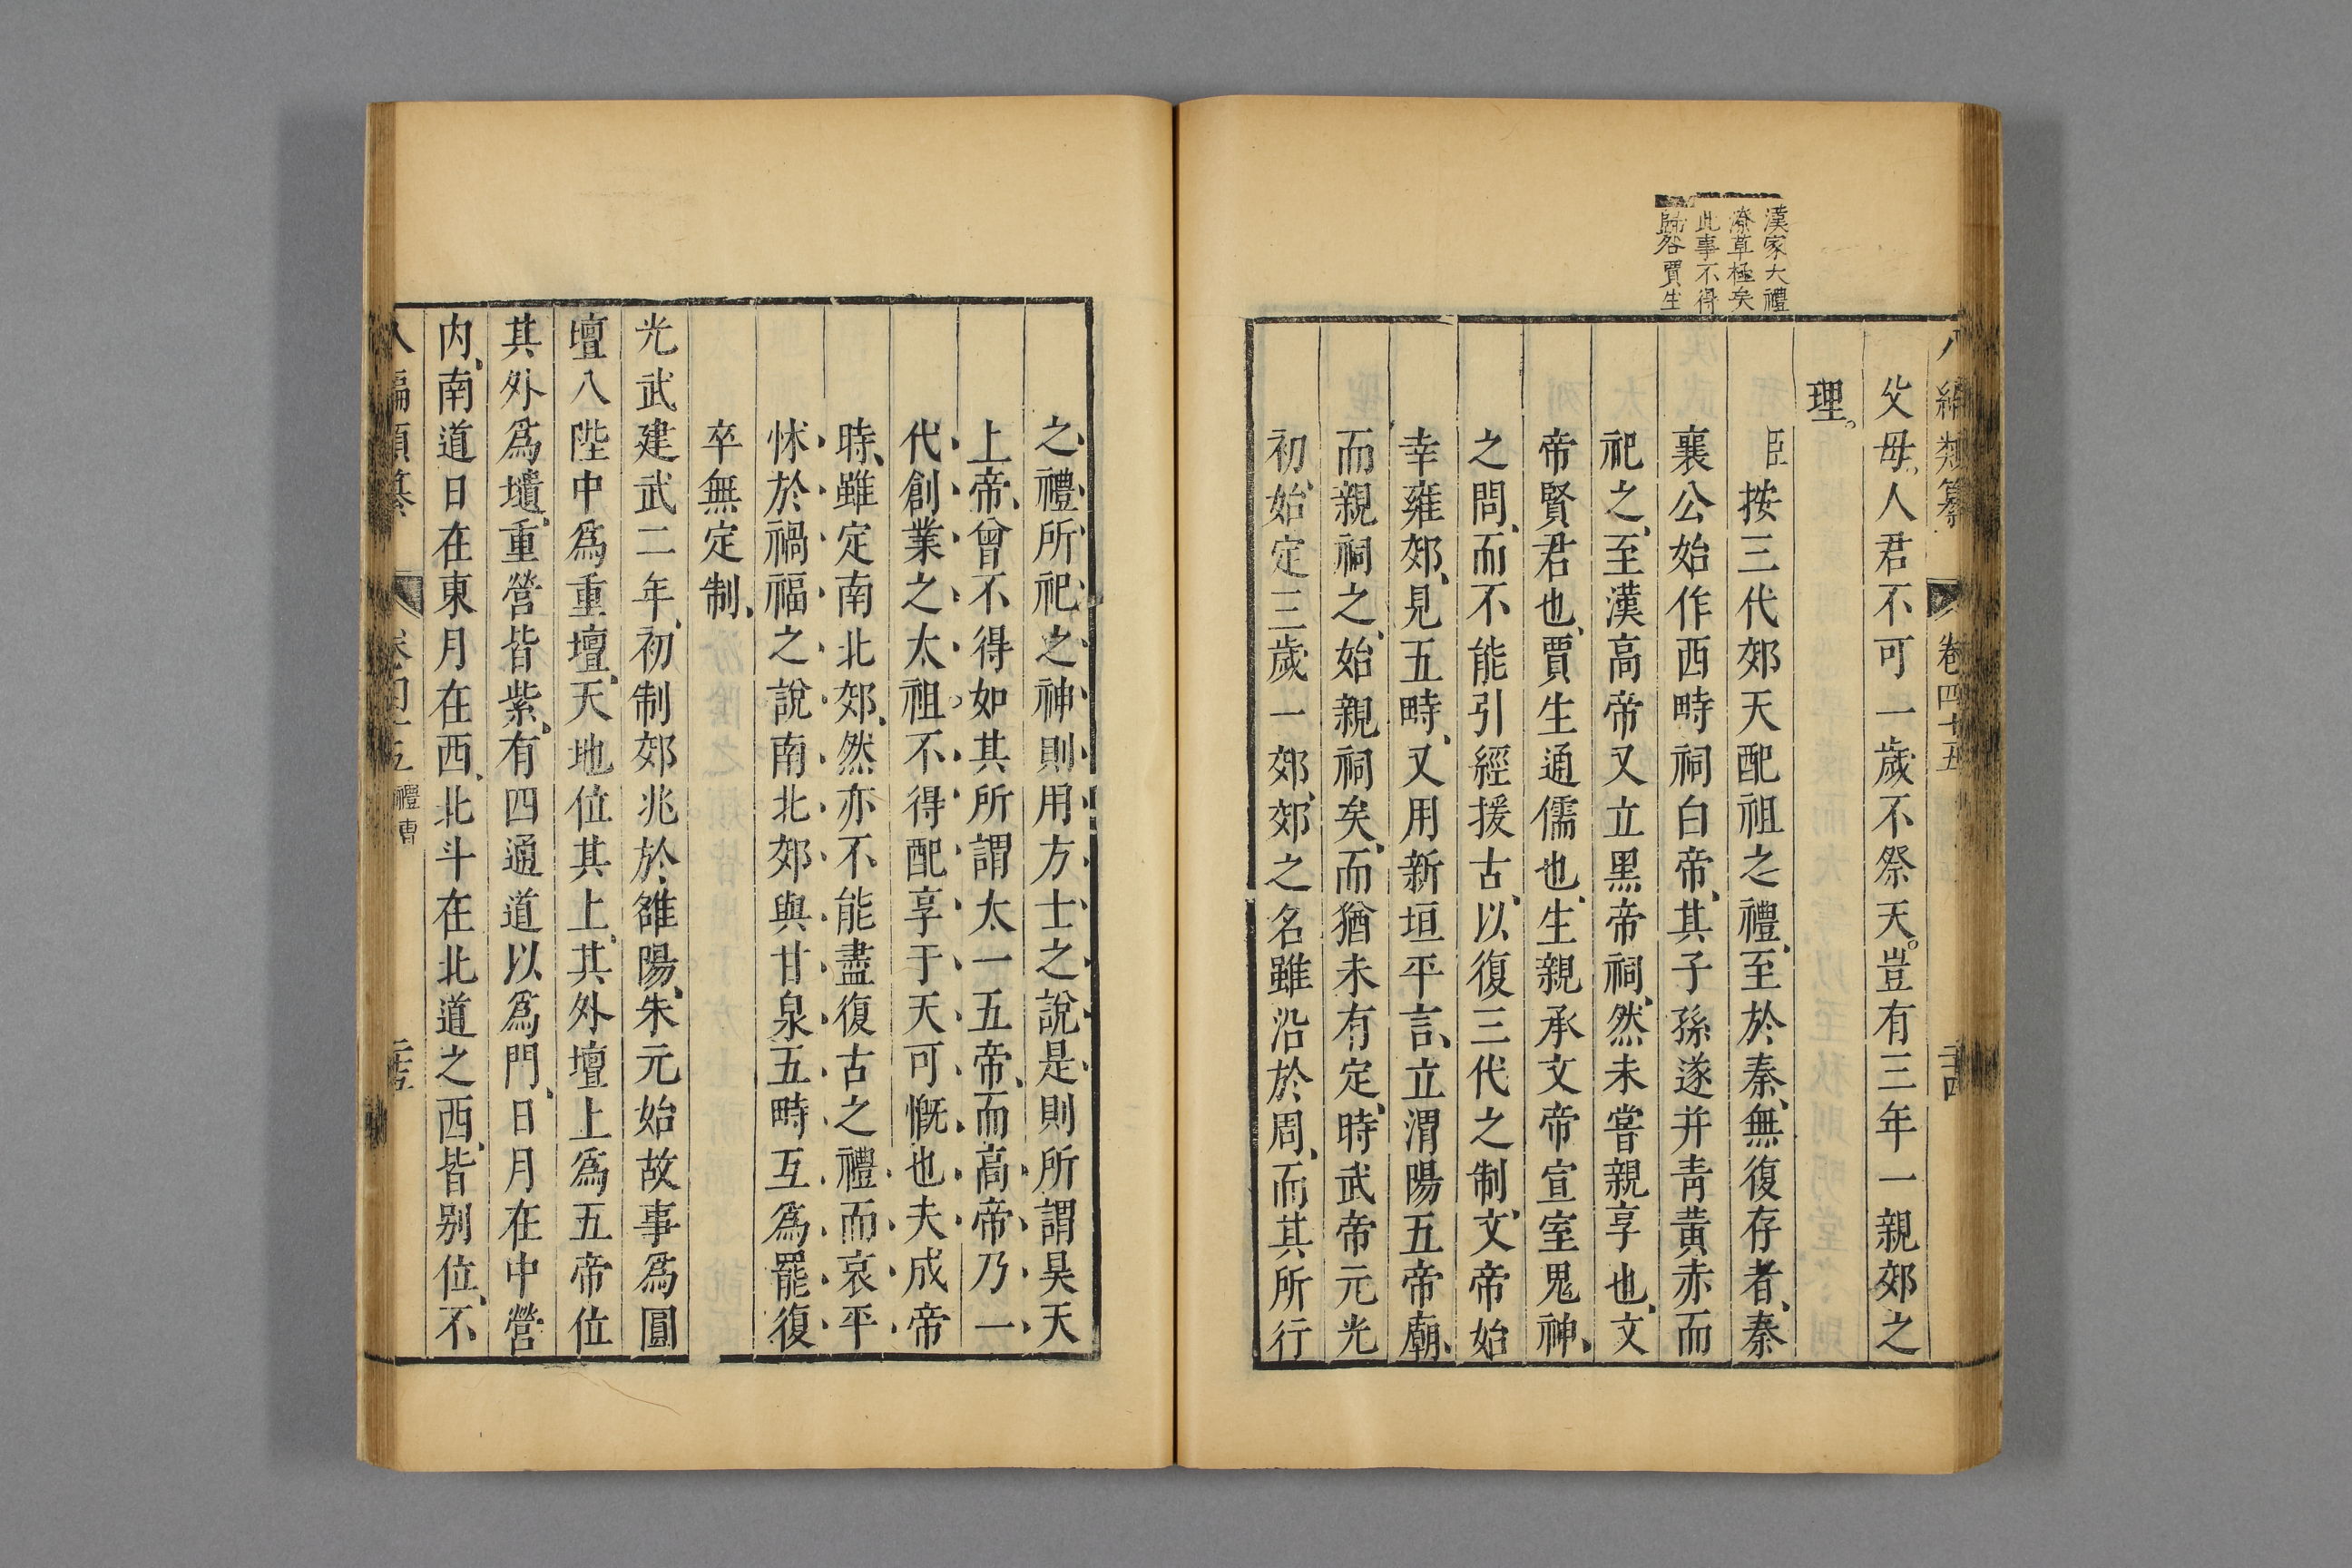 八編類纂 卷四十五 二十四
漢家大禮
潦草極矣
此事不得
歸咎賈生
父母、人君不可一歲不祭天。豈有三年一親郊之
理。
臣按三代郊天配祖之禮、至於秦、無復存者、秦
襄公始作西畤祠白帝、其子孫遂并青黃赤而
祀之、至漢高帝又立黑帝祠、然未嘗親享也、文
帝賢君也、賈生通儒也、生親承文帝宣室鬼神、
之問、而不能引經援古、以復三代之制、文帝始
幸雍郊、見五畤、又用新垣平言、立渭陽五帝廟、
而親祠之、始親祠矣、而猶未有定、時武帝元光
初、始定三歲一郊、郊之名雖沿於周、而其所行
之禮所祀之神則用方士之說是則所謂昊天
上帝、曾不得如其所謂太一五帝、而高帝乃一
代創業之太祖。不得配享于天可慨也夫成帝
時、雖定南北郊、然亦不能盡復古之禮而哀平
怵於禍福之說南北郊與甘泉五畤互為罷復
卒無定制、
光武建武二年、初制郊兆於雒陽、朱元始故事爲圓
壇八陛中爲重壇、天地位其上、其外壇上爲五帝位
其外爲壝、重營皆紫、有四通道以爲門、日月在中營
內、南道日在東月在西、北斗在北道之西、皆别位、不
八編類纂 卷四十五 禮曹